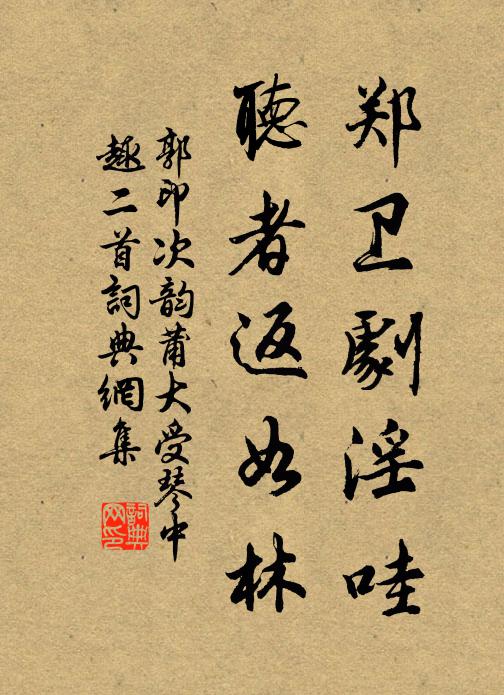 郑卫劇淫哇
聽者返如林
郭印次韵蒲大受琴中
趣二首詞典網集
詞典网印